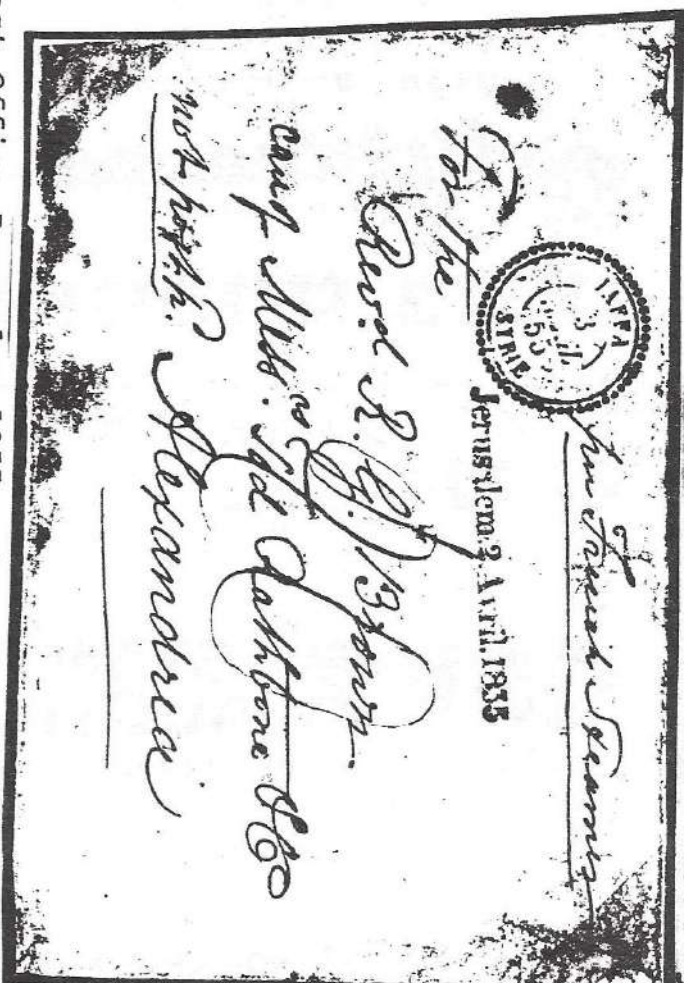 pr French Steamer
JAFFA
3
AVRIL
55
SYRIE
Jerusalem 2 Avril. 1855
For the
Revd R. G. Brown.
care of Messrs Rathbone & Co
not post pd. Alexandria